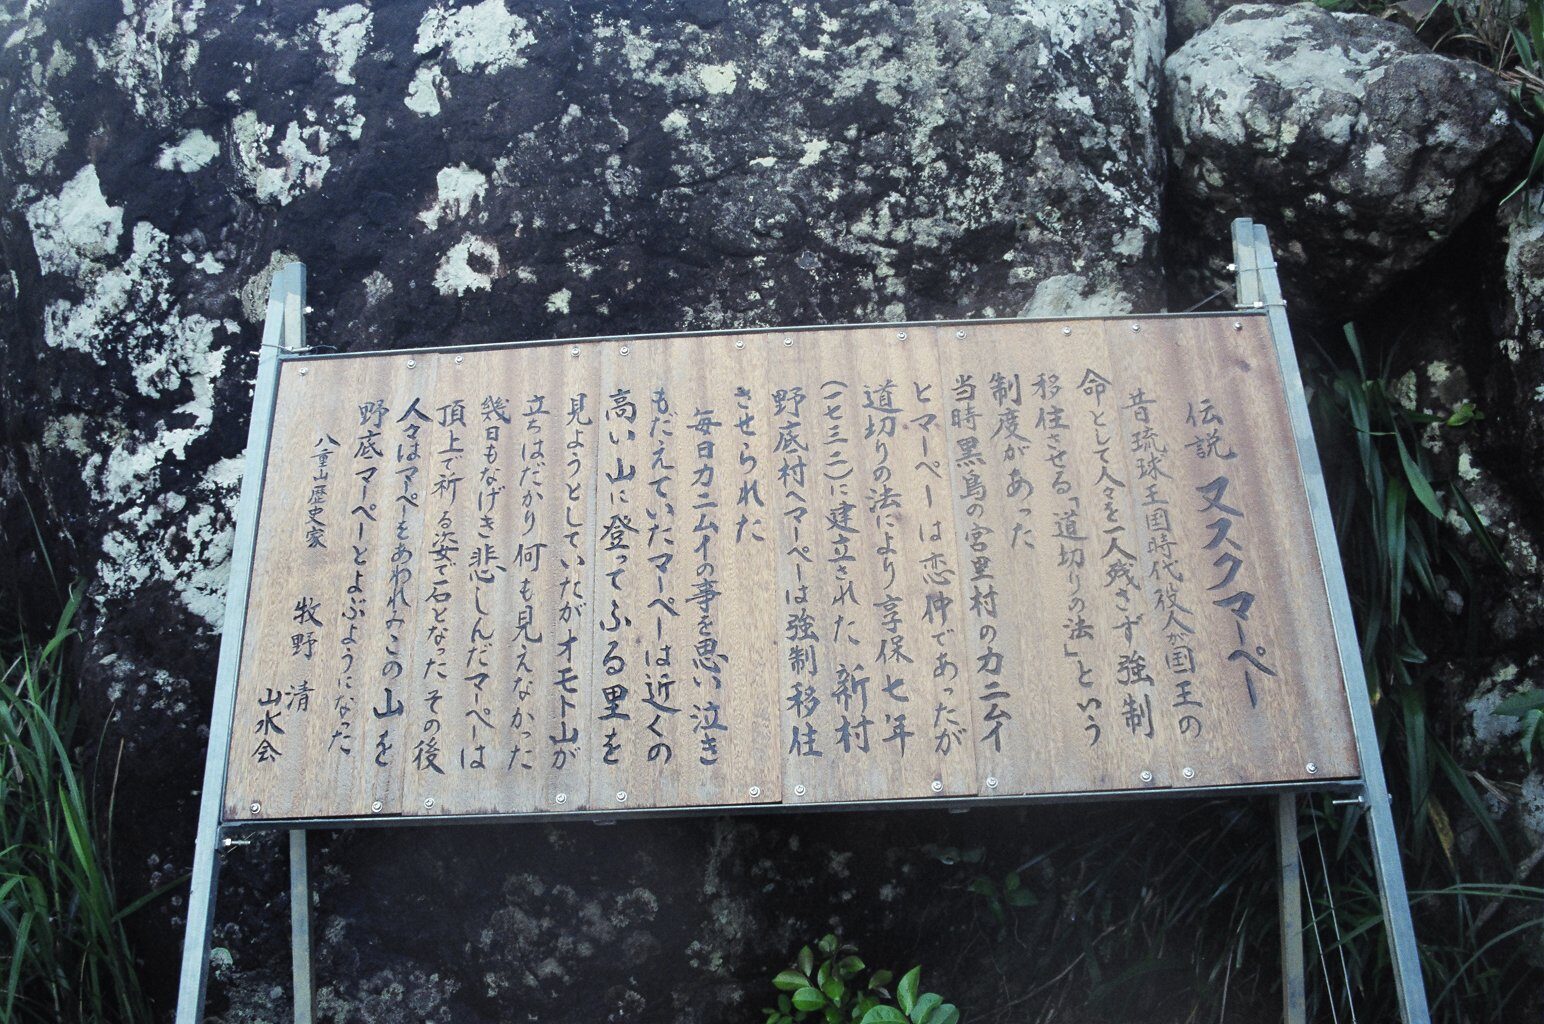 伝説 ヌスクマーペー
昔琉球王国時代役人が国王の
命として人々を一人残さず強制
移住させる「道切りの法」という
制度があった
当時黒島の宮里村のカニムイ
とマーペーは恋仲であったが
道切りの法により享保七年
(一七三二)に建立された新村
野底村へマーペーは強制移住
させられた
毎日カニムイの事を思い泣き
もだえていたマーペーは近くの
高い山に登ってふる里を
見ようとしていたがオモト山が
立ちはだかり何も見えなかった
幾日もなげき悲しんだマーペーは
頂上で祈る姿で石となったその後
人々はマーペをあわれみこの山を
野底マーペーとよぶようになった
八重山歴史家 牧野 清
山水会